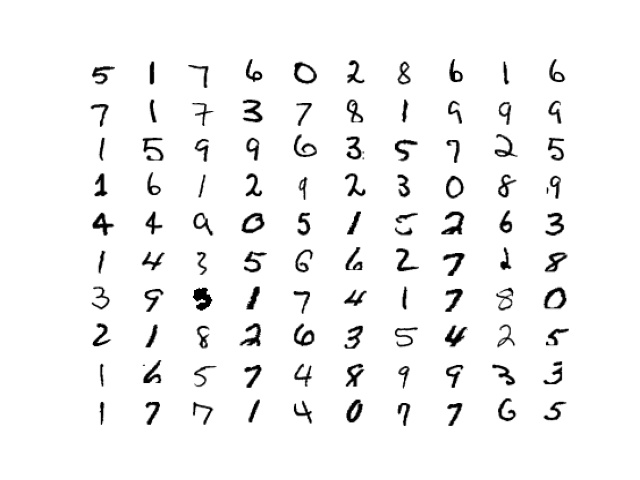 5 1 7 6 0 2 8 6 1 6
7 1 7 3 7 8 1 9 9 9
1 5 9 9 6 3 5 7 2 5
1 6 1 2 9 2 3 0 8 9
4 4 9 0 5 1 5 2 6 3
1 4 3 5 6 6 2 7 2 8
3 9 5 1 7 4 1 7 8 0
2 1 8 2 6 3 5 4 2 5
1 6 5 7 4 8 9 9 3 3
1 7 7 1 4 0 7 7 6 5